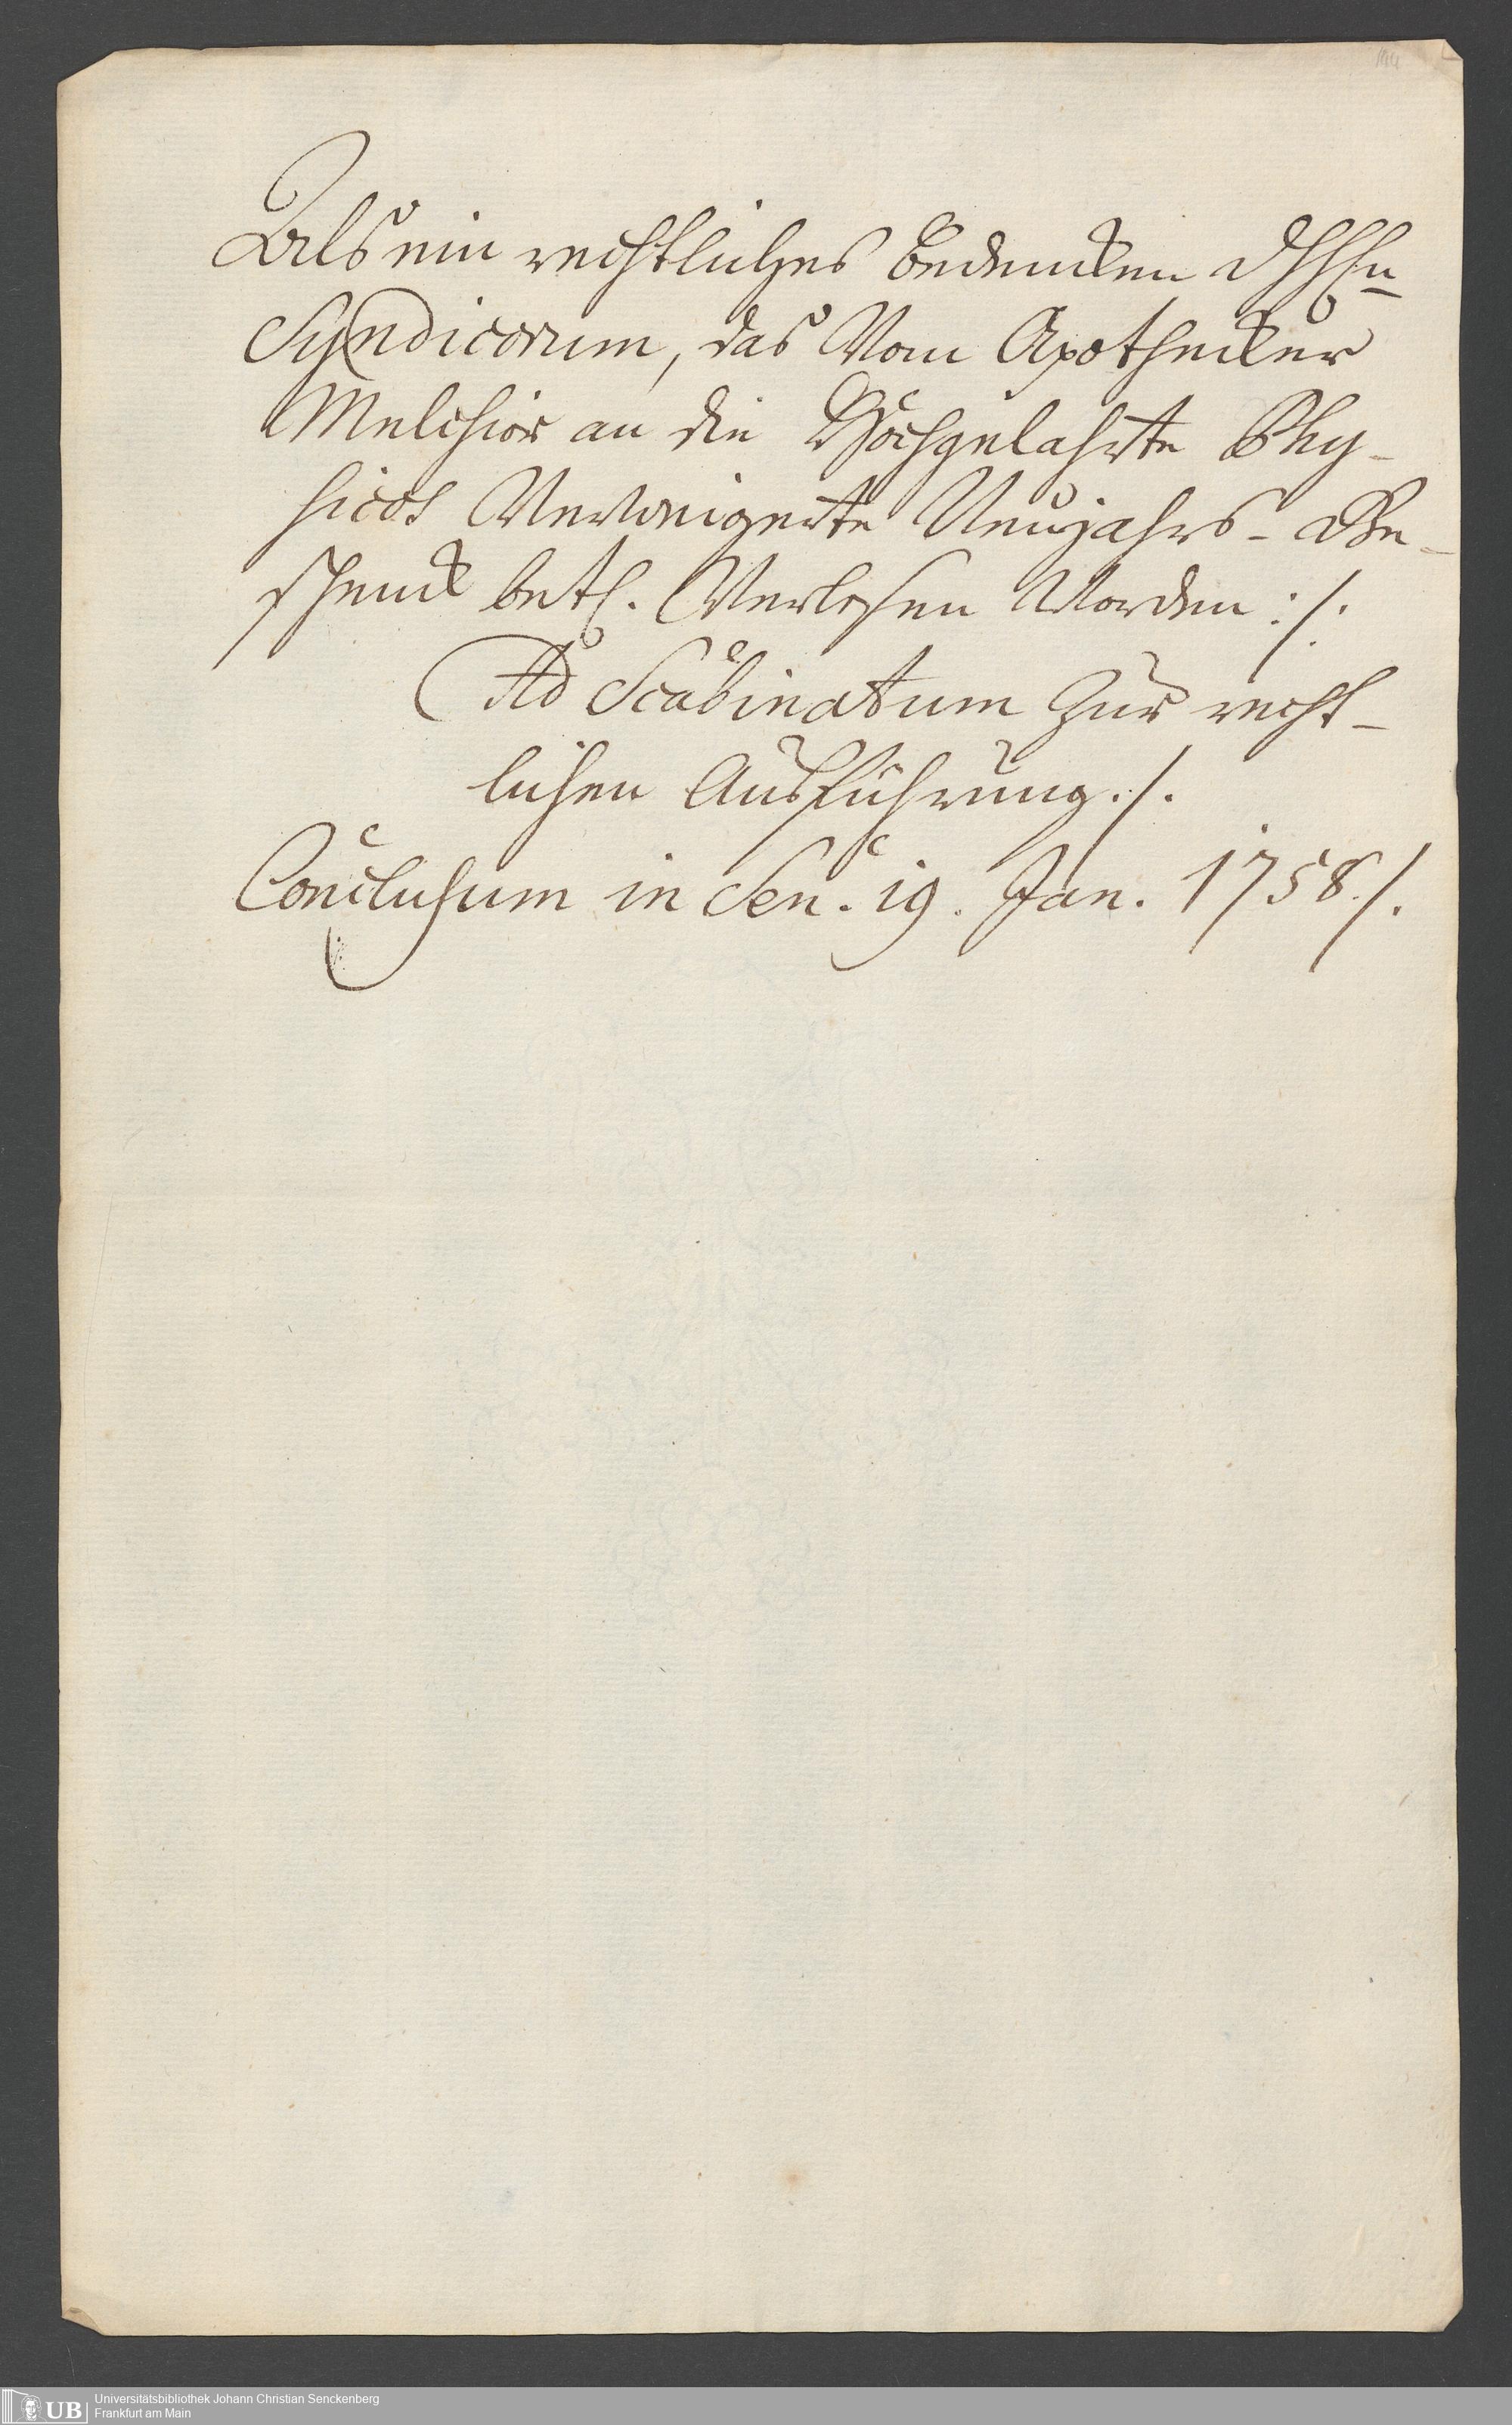 Als ein rechtliches Bedencken
Syndicorum, das Vom Apothecker
Melchior an die Hochgelahrte Phy-
sicos Verweigerte Neujahrs-Ge-
schenck betr. Verlesen Worden :/:
Ad Scabinatum Zur recht-
lichen Ausführung ./.
Conclusum in Sen. 19. Jan. 1758 ./.
UB
Universitätsbibliothek Johann Christian Senckenberg
Frankfurt am Main